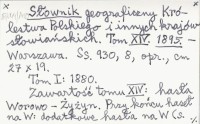 Słownik geograficzny Kró-
lestwa Polskiego i innych krajów
słowiańskich. Tom XIV. 1895. -
Warszawa. Ss. 930, 8, opr., cm
27 x 19.
Tom I: 1880.
Zawartość tomu XIV: hasła
Worowo - Żyżyn. Przy końcu haseł
na W: dodatkowe hasła na W (s.